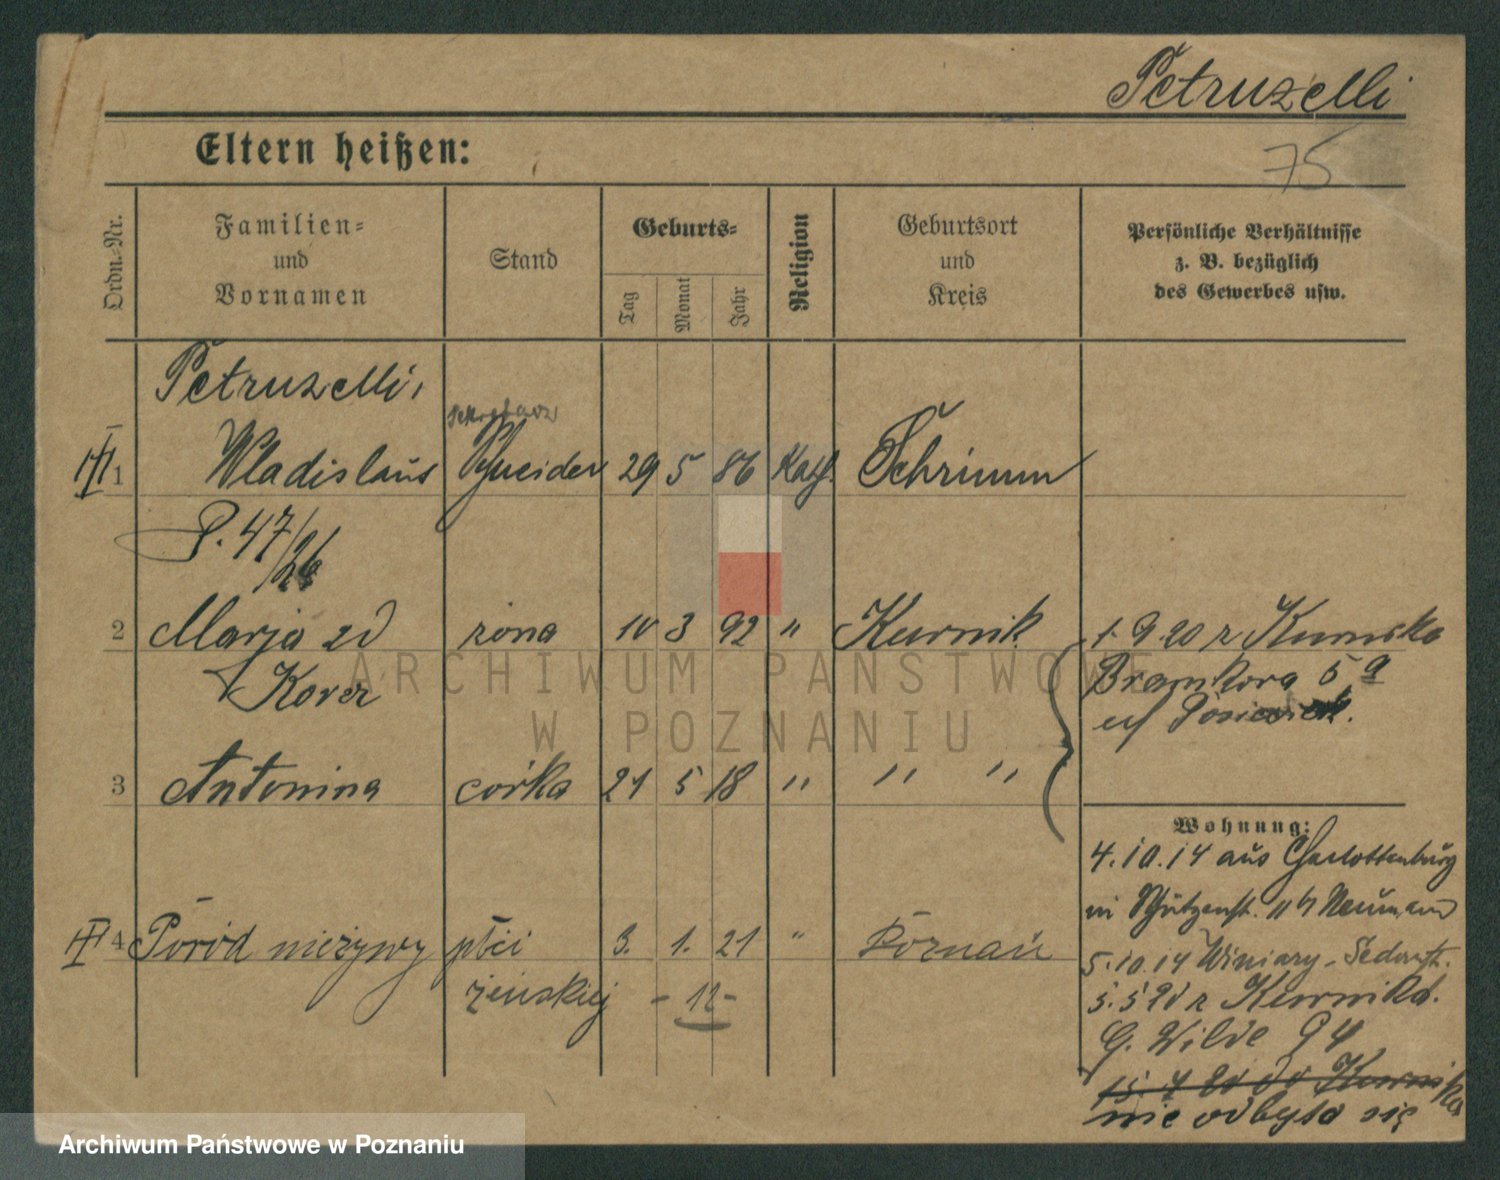 Petruzelli
Eltern heißen:
75
Ordn.-Nr.
Familien=
und
Vornamen
Stand
Geburts=
Tag
Monat
Jahr
Religion
Geburtsort
und
Kreis
Persönliche Verhältnisse
z. B. bezüglich
des Gewerbes usw.
Petruzelli,
1 Wladislaus Schneider 29 5 86 Kath. Schrimm
P. 47/26
2 Marja zd żona 10 3 92 " Kurnik 1. 9 20 z Kurnika
Kover
Bramkowa 5 a
3 Antonina córka 21 5 18 " " "
Wohnung:
4.10.14 aus Charlottenburg
in Schützenstr. Neumann
4 Poród nieżywy płci 3. 1. 21 " Poznań
żeńskiej - 12 -
5.10.14 Winiary - Sedanstr.
5. 5 20 z Kurnika.
G. Wilde 94
15. 4 20 do Kurnika
nie odbyło się
ARCHIWUM PAŃSTWOWE
W POZNANIU
Archiwum Państwowe w Poznaniu